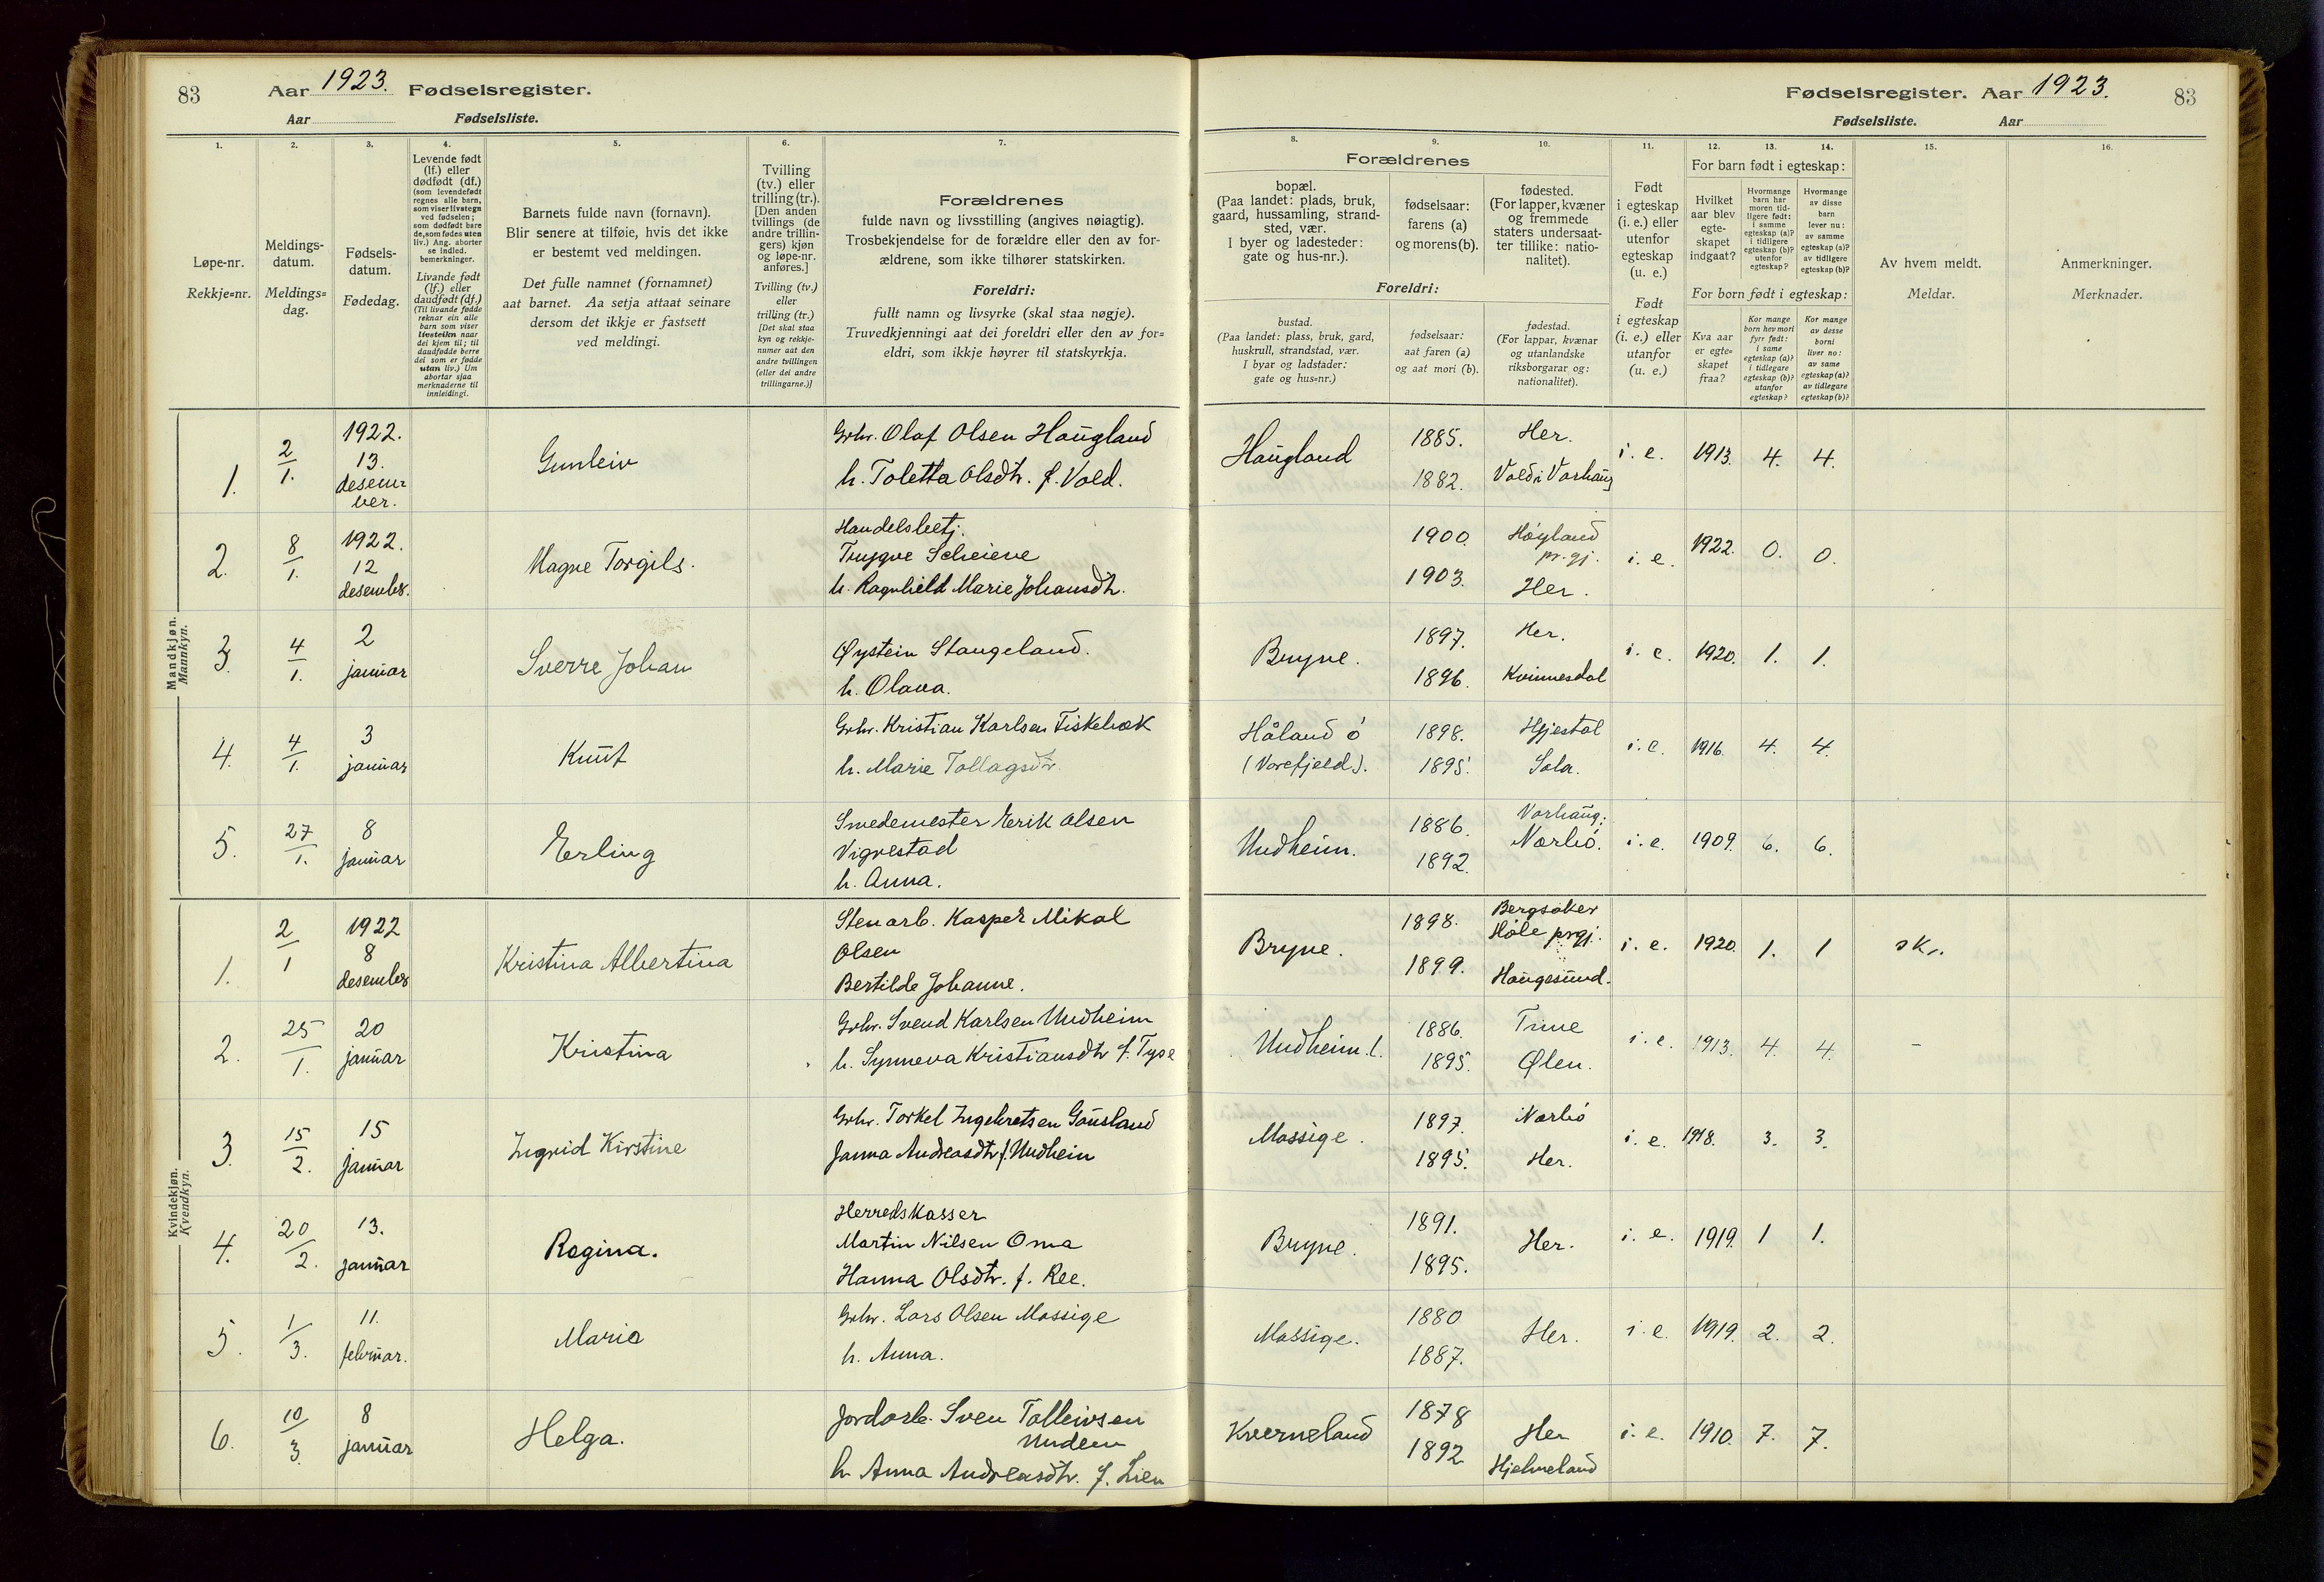 83 Aar 1923. Fødselsregister.
Aar Fødselsliste.
Fødselsregister. Aar 1923. 83
Fødselsliste. Aar
1. 2. 3. 4. 5. 6. 7.
Løpe-nr.
Rekkje=nr.
Meldings-
datum.
Meldings=
dag.
Fødsels-
datum.
Fødedag.
Levende født
(lf.) eller
dødfødt (df.)
(som levendefødt
regnes alle barn,
som viser livstegn
ved fødselen;
som dødfødt bare
de, som fødes uten
liv.) Ang. aborter
se indled.
bemerkninger.
Livande født
(lf.) eller
daudfødt (df.)
(Til livande fødde
reknar ein alle
barn som viser
livsteikn naar
dei kjem til; til
daudfødde berre
dei som er fødde
utan liv.) Um
abortar sjaa
merknaderne til
innleidingi.
Barnets fulde navn (fornavn).
Blir senere at tilføie, hvis det ikke
er bestemt ved meldingen.
Det fulle namnet (fornamnet)
aat barnet. Aa setja attaat seinare
dersom det ikkje er fastsett
ved meldingi.
Tvilling
(tv.) eller
trilling (tr.).
[Den anden
tvillings (de
andre trillin-
gers) kjøn
og løpe-nr.
anføres.]
Tvilling (tv.)
eller
trilling (tr.)
[Det skal staa
kyn og rekkje-
numer aat den
andre tvillingen
(eller dei andre
trillingarne.)]
Forældrenes
fulde navn og livsstilling (angives nøiagtig).
Trosbekjendelse for de forældre eller den av for-
ældrene, som ikke tilhører statskirken.
Foreldri:
fullt namn og livsyrke (skal staa nøgje).
Truvedkjenningi aat dei foreldri eller den av for=
eldri, som ikkje høyrer til statskyrkja.
8. 9. 10. 11. 12. 13. 14. 15. 16.
Forældrenes
bopæl.
(Paa landet: plads, bruk,
gaard, hussamling, strand-
sted, vær.
I byer og ladesteder:
gate og hus-nr.).
fødselsaar:
farens (a)
og morens (b).
fødested.
(For lapper, kvæner
og fremmede
staters undersaat-
ter tillike: natio-
nalitet).
Foreldri:
bustad.
(Paa landet: plass, bruk, gard,
huskrull, strandstad, vær.
I byar og ladstader:
gate og hus=nr.)
fødselsaar:
aat faren (a)
og aat mori (b).
fødestad.
(For lappar, kvænar
og utanlandske
riksborgarar og:
nationalitet).
Født
i egteskap
(i. e.) eller
utenfor
egteskap
(u. e.)
Født
i egteskap
(i. e.) eller
utanfor
(u. e.)
For barn født i egteskap:
Hvilket
aar blev
egte-
skapet
indgaat?
Hvormange
barn har
moren tid-
ligere født:
i samme
egteskap (a)?
i tidligere
egteskap (b)?
utenfor
egteskap?
Hvormange
av disse
barn
lever nu:
av samme
egteskap (a)?
av tidligere
egteskap (b)?
For born født i egteskap:
Kva aar
er egte=
skapet
fraa?
Kor mange
born hev mori
fyrr født:
i same
egteskap (a)?
i tidlegare
egteskap (b)?
utanfor
egteskap?
Kor mange
av desse
borni
liver no:
av same
egteskap (a)?
av tidlegare
egteskap (b)?
Av hvem meldt.
Meldar.
Anmerkninger.
Merknader.
Mandkjøn.
Mannkyn.
1. 2/1. 1922. 13. desember. Gunleiv
Grbr. Olaf Olsen Haugland
h. Toletta Olsdtr. f. Vold.
Haugland 1885. Her. i. e. 1913. 4. 4.
1882. Vold i Varhaug
2. 8/1. 1922. 12 desember. Magne Torgils.
Handelsbetj.
Trygve Scheieve
h. Ragnhild Marie Johansdtr.
1900. Høyland prgj. i. e. 1922. 0. 0.
1903. Her.
3. 4/1. 2 januar Sverre Johan
Øystein Stangeland.
h. Olava.
Bryne. 1897. Her. i. e. 1920. 1. 1.
1896. Kvinnesdal
4. 4/1. 3 januar Knut
Grbr. Kristian Karlsen Fiskebæk
h. Marie Tollagsdtr.
Håland ó 1898. Gjestal i. e. 1916. 4. 4.
(Varefjeld). 1895. Sola.
5. 27/1. 8 januar Erling
Smedemester Erik Olsen
Vigrestad
h. Anna.
Undheim. 1886. Varhaug. i. e. 1909. 6. 6.
1892. Nærbó.
Kvindekjøn.
Kvendkyn.
1. 2/1 1922 8 desember Kristina Albertina
Stenarb. Kasper Mikal
Olsen
Bertilde Johanne.
Bryne. 1898. Bergsaker Høle prgj. i. e. 1920. 1. 1 sk.
1899. Haugesund.
2. 25/1. 20 januar Kristina
Grbr. Svend Karlsen Undheim
h. Synneva Kristiansdtr f. Tyse
Undheim l. 1886. Time i. e. 1913. 4. 4. –
1895. Ølen.
3. 15/2. 15 januar Ingrid Kirstine
Grbr. Torkel Ingebretsen Gausland
Janna Andreasdtr f. Undheim
Mossige. 1897. Nærbó i. e. 1918. 3. 3.
1895. Her.
4. 20/2. 13. januar Ragina.
Herredskasser
Martin Nilsen Oma
Hanna Olsdtr. f. Ree.
Bryne. 1891. Her. i. e. 1919. 1 1.
1895.
5. 1/3. 11. februar. Maria
Grbr. Lars Olsen Mossige
h. Anna.
Mossige. 1880 Her. i. e. 1919. 2. 2.
1887.
6. 10/3. 8 januar Helga.
Jordarb. Sven Tolleivsen
Undem
h Anna Andreasdtr. f. Lien
Kverneland 1878 Her i. e. 1910. 7. 7.
1892 Hjelmeland